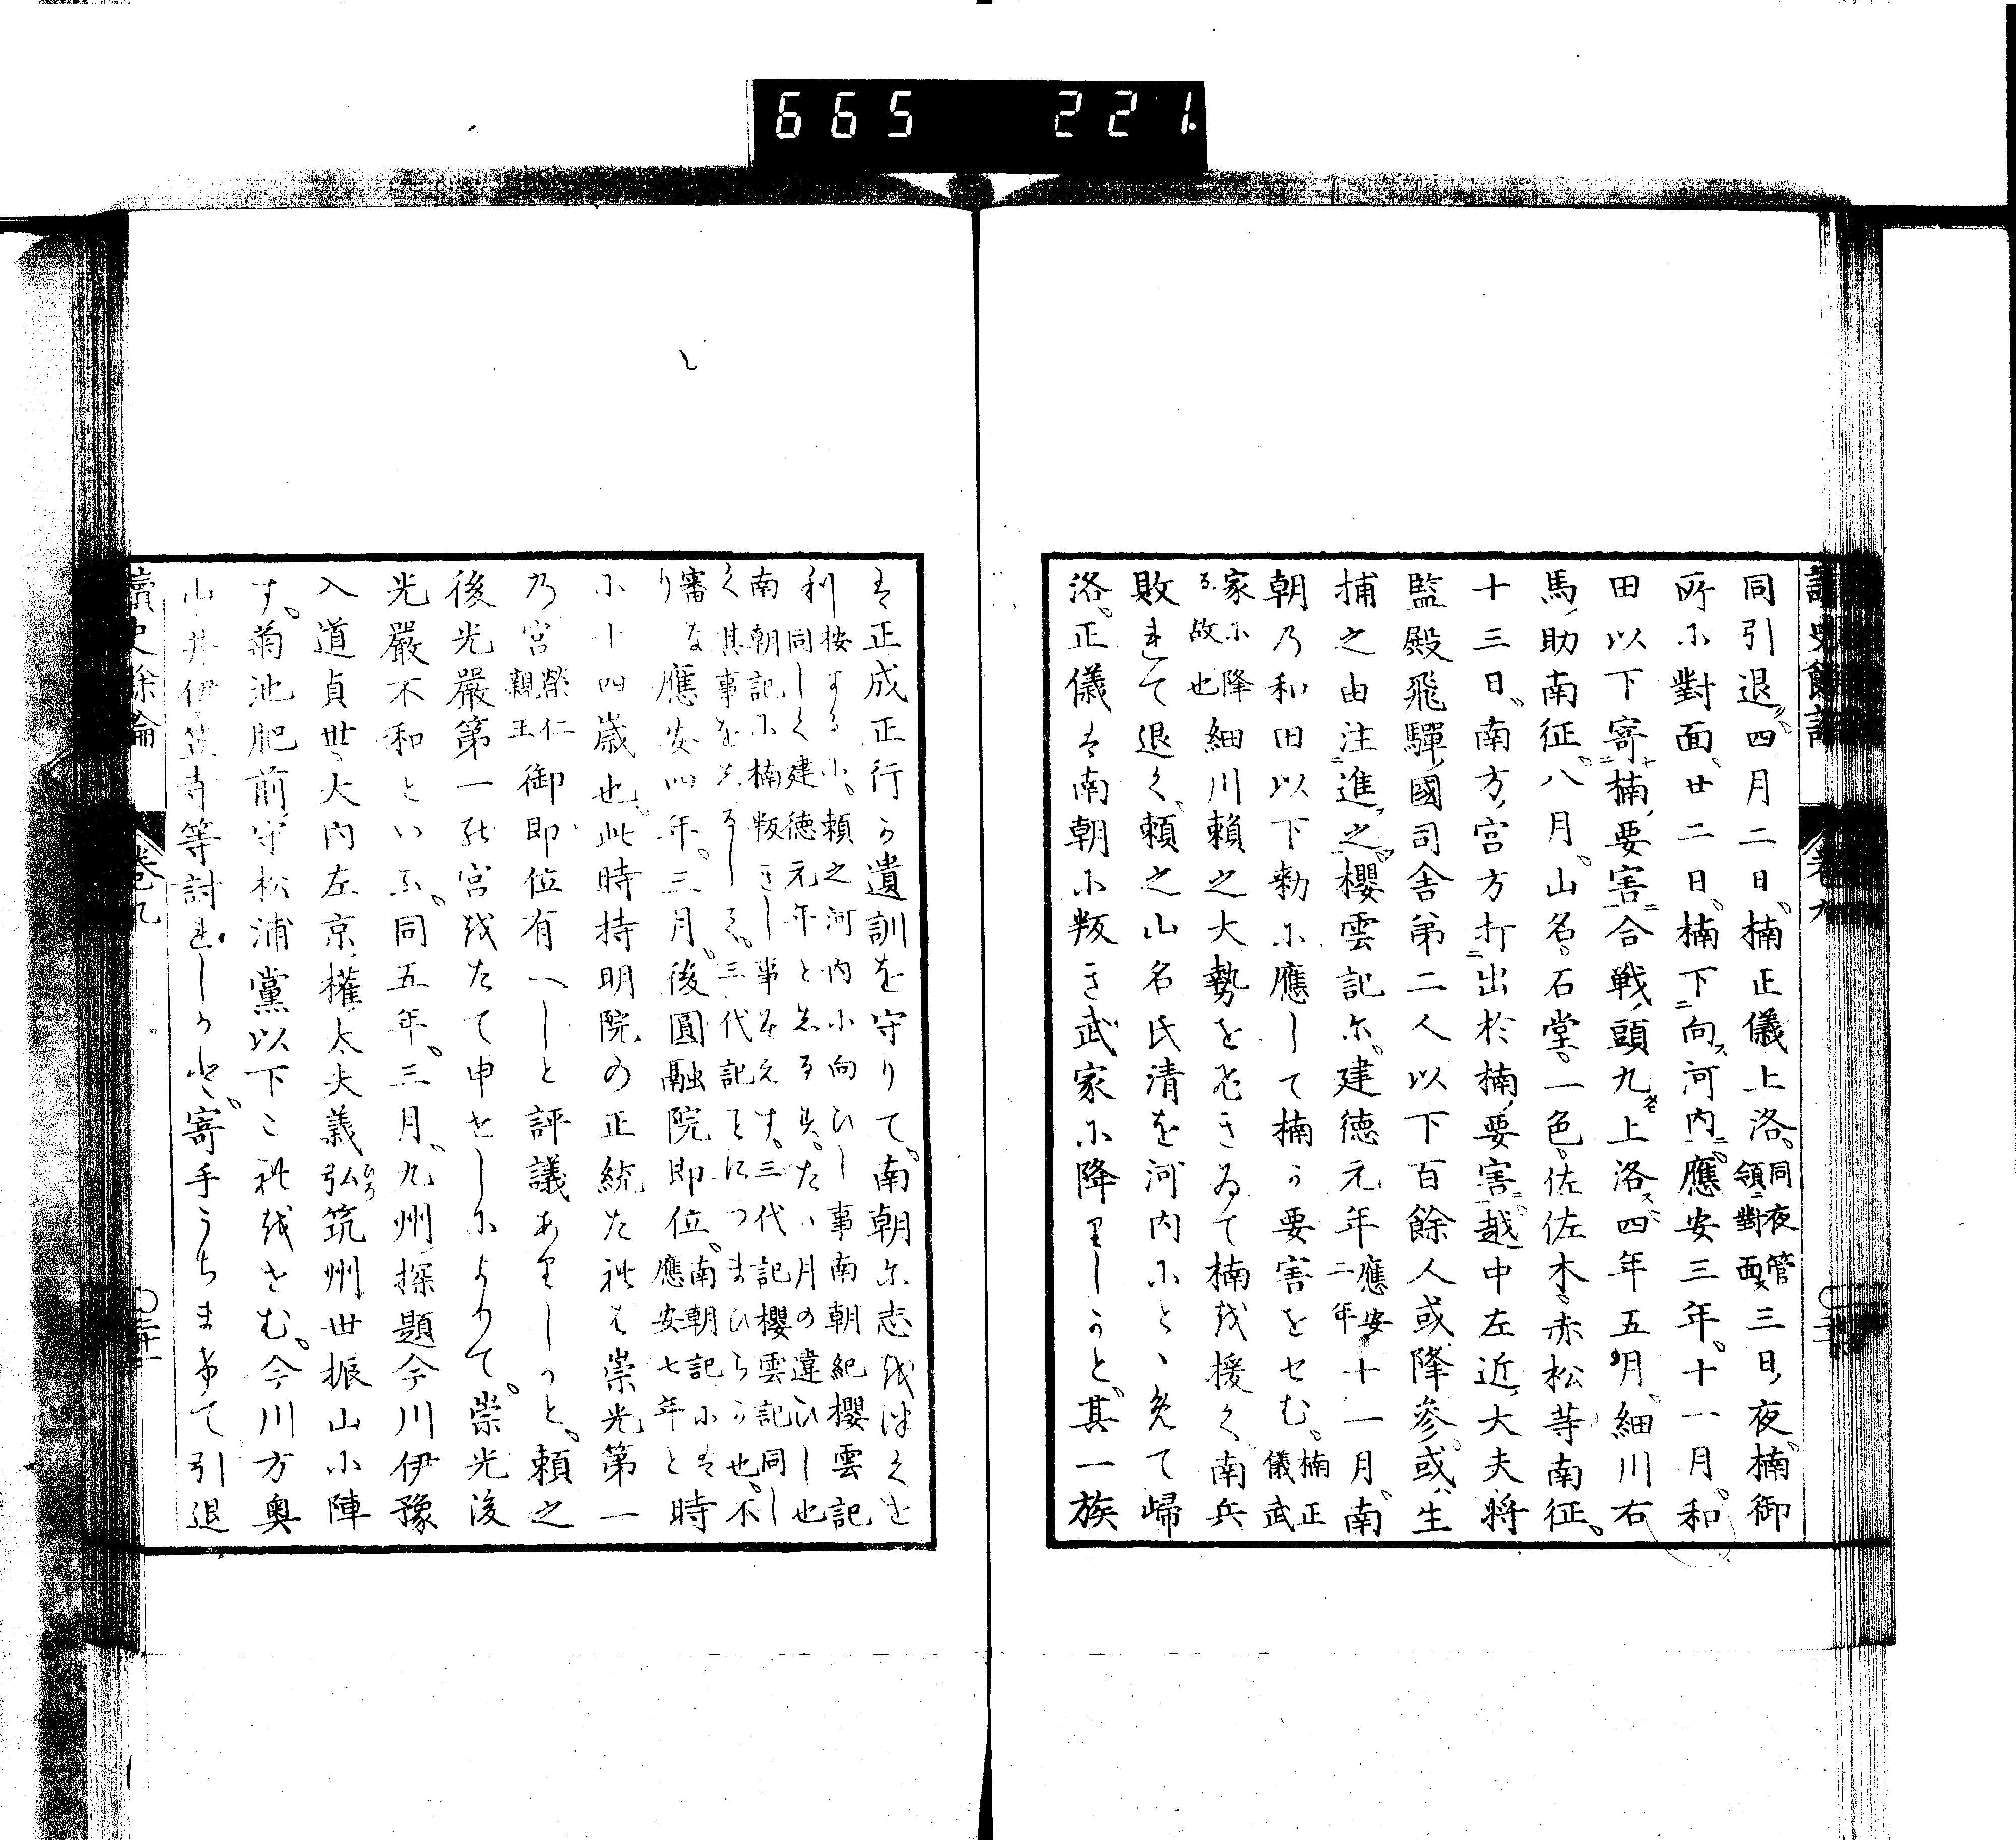 665 221
讀史餘論 卷九
同引退四月二日楠正儀上洛同夜管領對面三日夜楠御
所ニ對面廿二日楠下向河内應安三年十一月和
田以下寄楠要害合戰頭九上洛四年五月細川右
馬助南征八月山名石堂一色佐佐木赤松等南征
十三日南方宮方打出於楠要害越中左近大夫將
監殿飛驒國司舎弟二人以下百餘人或降參或生
捕之由注進之櫻雲記に建徳元年應安二年十一月南
朝の和田以下勅に應して楠か要害をせむ楠正儀武
家に降る故也細川頼之大勢をひきゐて楠を援く南兵
敗れて退く頼之山名氏清を河内にとゝめて歸
洛正儀は南朝に叛き武家に降りしかと其一族
は正成正行か遺訓を守りて南朝に志をはくを
利按するに頼之河内に向ひし事南朝紀櫻雲記
同しく建徳元年としるす たゝ月の違ひし也
南朝記に楠叛きし事みえす三代記櫻雲記同し
く其事をしるしぬ三代記とにつまひらか也不
審なり應安四年三月後圓融院即位南朝記には應安七年と時
に十四歳也此時持明院の正統たれは崇光第一
の宮榮仁親王御即位有へしと評議ありしかと頼之
後光嚴第一の宮をたて申せしによりて崇光後
光嚴不和といふ同五年三月九州探題今川伊豫
入道貞世大内左京權太夫義弘筑州世振山に陣
す菊池肥前守松浦黨以下これをせむ今川方奥
山井伊笠寺等討れしかは寄手うちまけて引退
讀史餘論 卷九